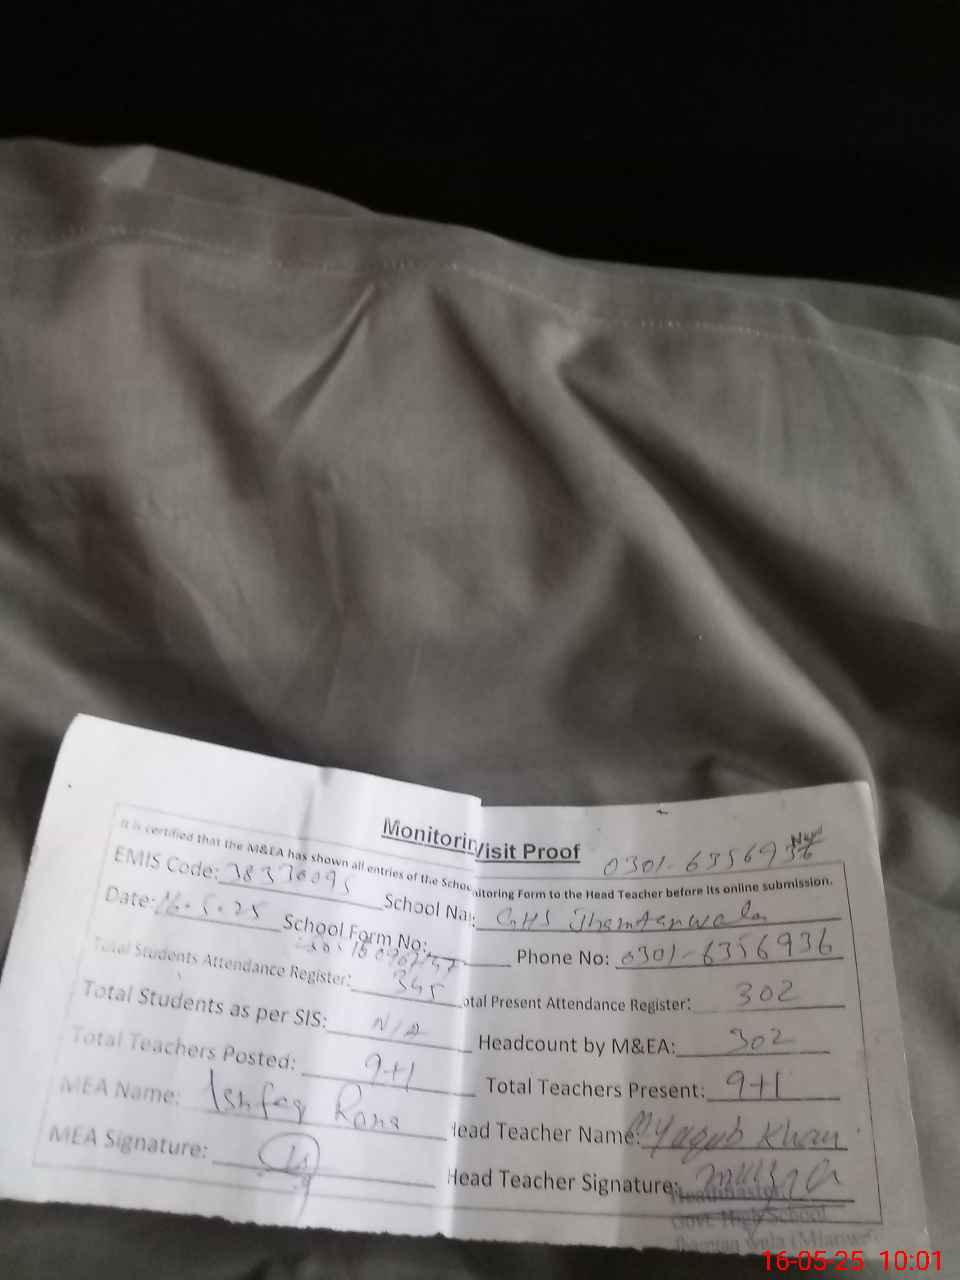 Monitorin Visit Proof
0301-6356936
It is certified that the M&EA has shown all entries of the School nitoring Form to the Head Teacher before its online submission.
EMIS Code: 38330095 School Na: GHS Jhamtanwala
Date: 16-5-25 School Form No: Phone No: 0301-6356936
Total Students Attendance Register: 345 otal Present Attendance Register: 302
Total Students as per SIS: N/A Headcount by M&EA: 302
Total Teachers Posted: 9+1 Total Teachers Present: 9+1
MEA Name: Ishfaq Rana Head Teacher Name: M Yaqub Khan
MEA Signature: Head Teacher Signature:
Headmaster
Govt. High School
16-05-25 10:01